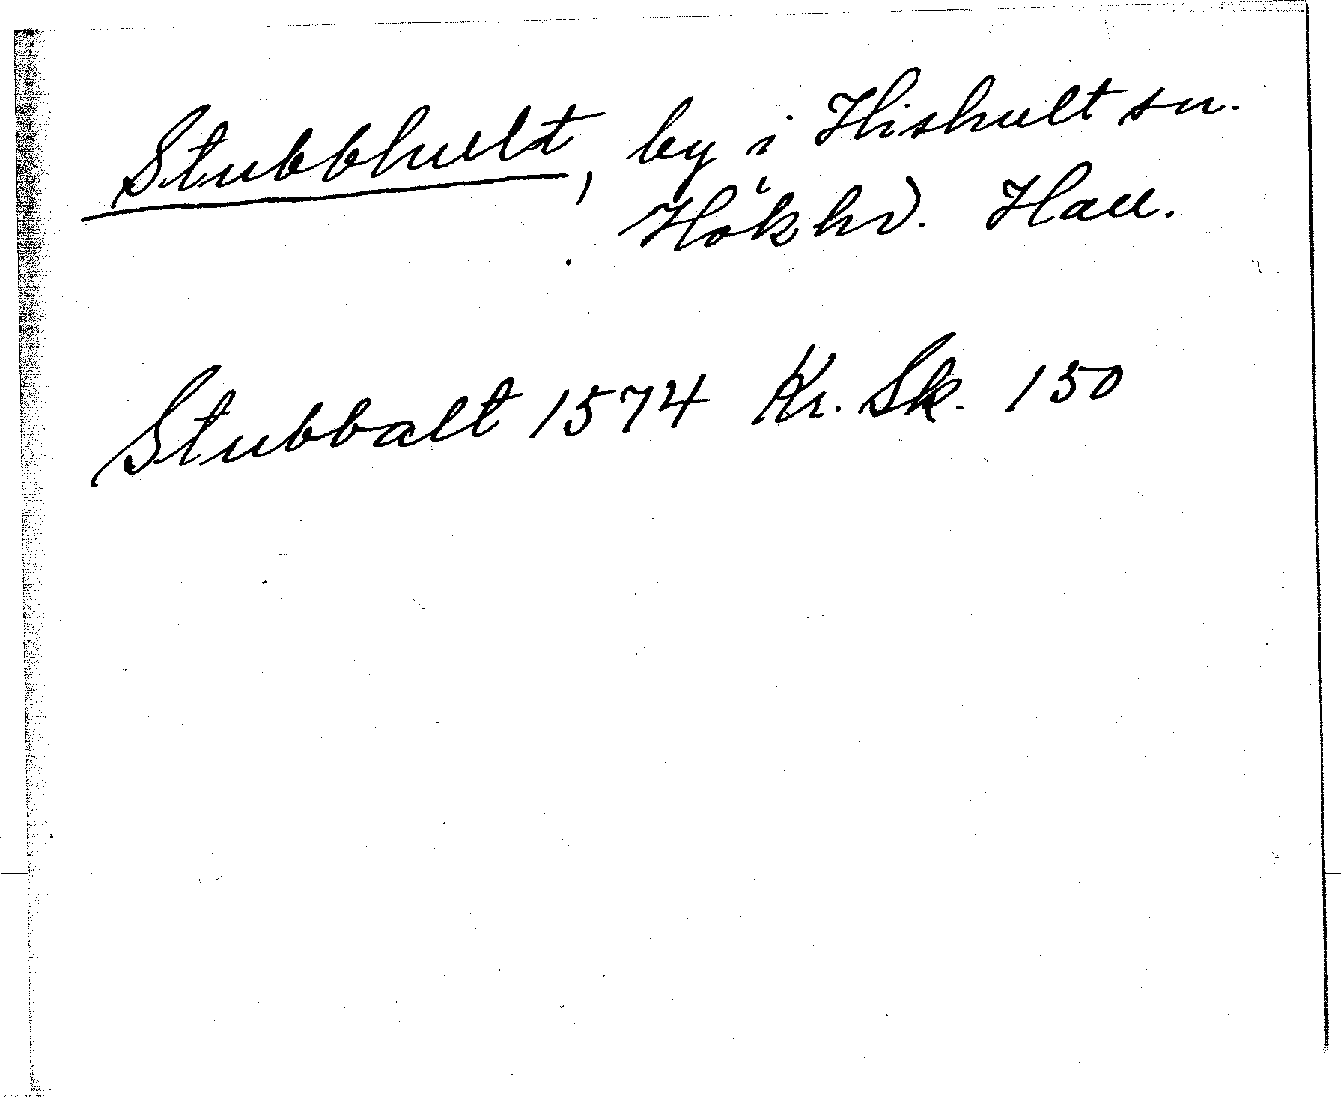 Stubbhult, by i Hishult sn.
Hök hd. Hall.
Stubbalt 1574 Kr. Sk. 150